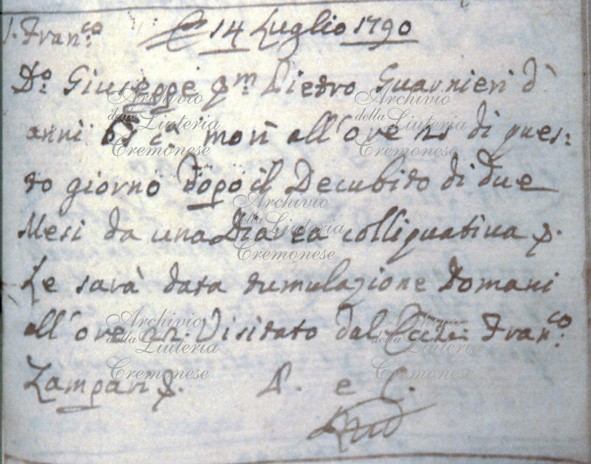 S. Fran.co 14 Luglio 1790
D.o Giuseppe qm. Pietro Guarnieri d'
anni c.a morì all'ore di ques:
to giorno dopo il Decubito di due
Mesi da una Diarea colliquativa
Le sarà data tumulazione domani
all'ore Visitato dal Fran.co
Zampari P. e C.
Archivio della Liuteria Cremonese
Archivio della Liuteria Cremonese
Archivio della Liuteria Cremonese
Archivio della Liuteria Cremonese
Archivio della Liuteria Cremonese